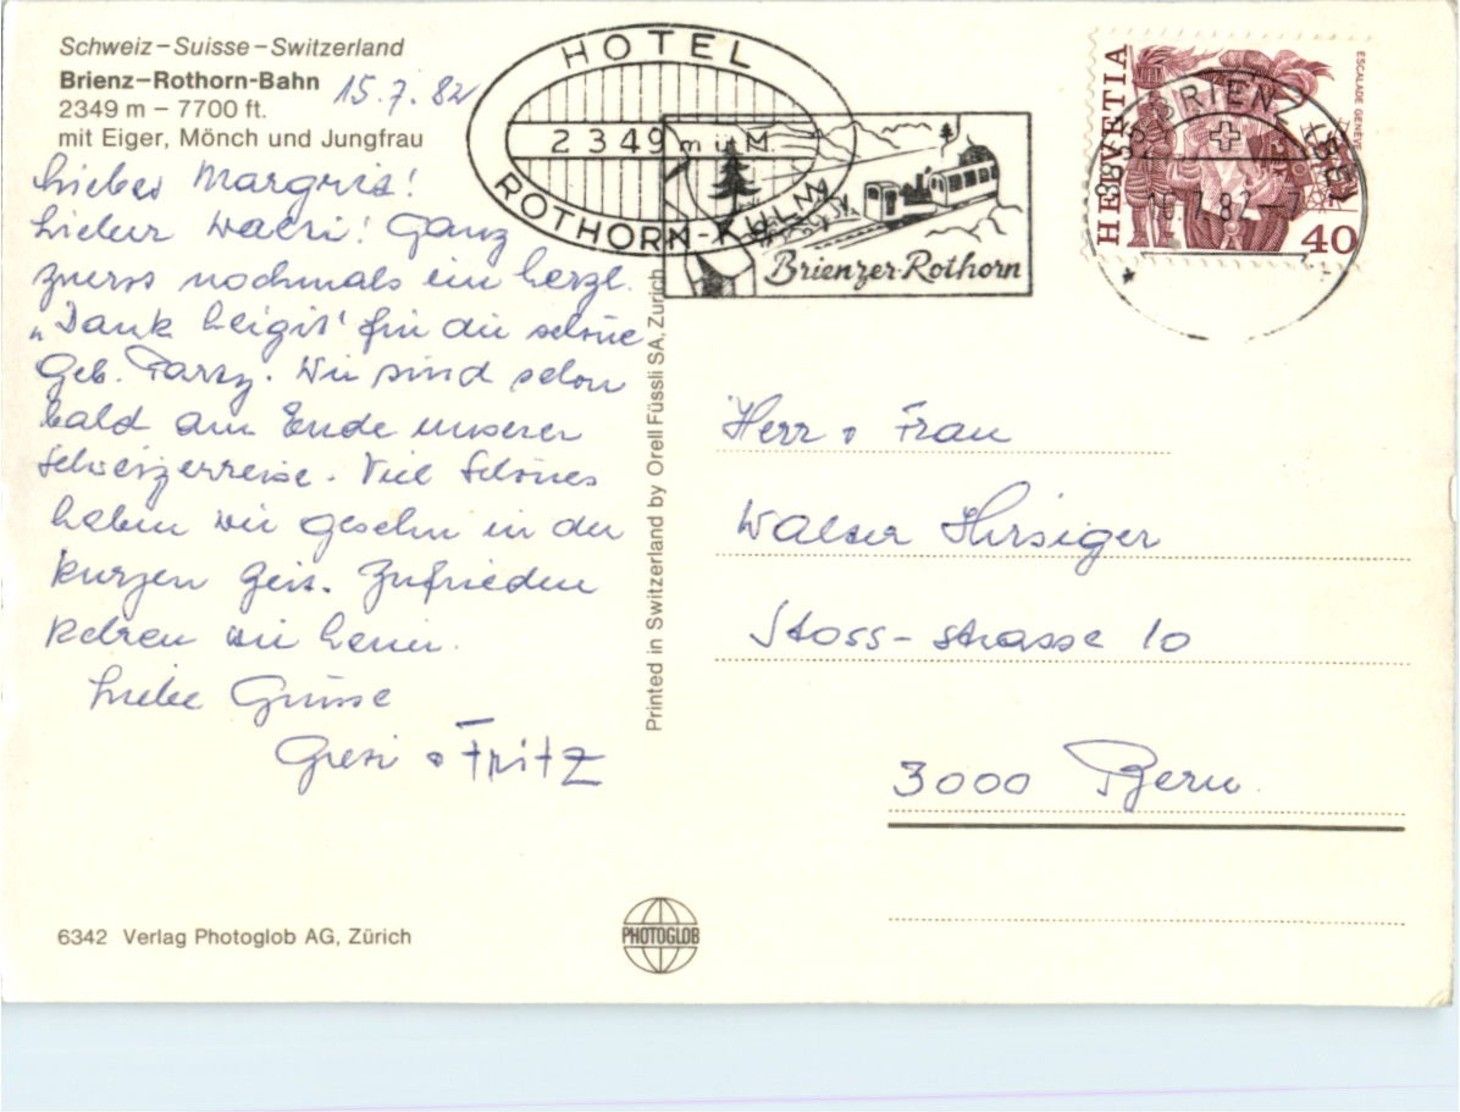 Schweiz–Suisse–Switzerland
Brienz–Rothorn-Bahn
15.7.82
2349 m – 7700 ft.
mit Eiger, Mönch und Jungfrau
Liebes Margrit!
Lieber Walti! Ganz
zuerst nochmals ein herzl.
„Dank heigit' für die schöne
Geb. Party. Wir sind schon
bald am Ende unserer
Schweizerreise. Viel Schönes
haben wir gesehn in der
kurzen Zeit. Zufrieden
kehren wir heim.
Liebe Grüsse
Gresi + Fritz
6342 Verlag Photoglob AG, Zürich
PHOTOGLOB
Printed in Switzerland by Orell Füssli SA, Zurich
HOTEL
2349 m ü M.
ROTHORN-KULM
Brienzer-Rothorn
HELVETIA
ESCALADE GENÈVE
40
3855 BRIENZ (BE)
16.7.82–7
Herr + Frau
Walter Hirsiger
Stoss-strasse 10
3000 Bern